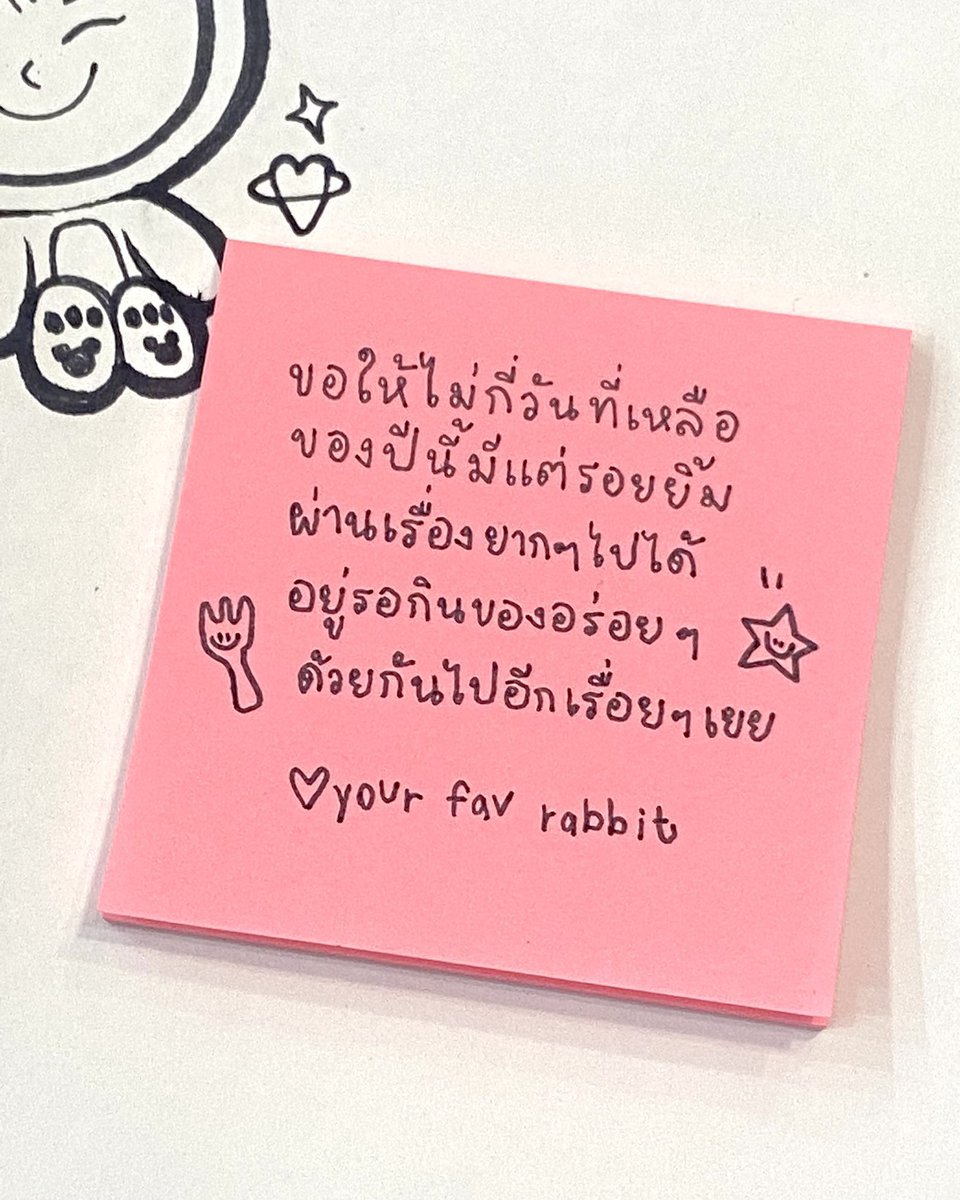 ขอให้ไม่กี่วันที่เหลือ
ของปีนี้มีแต่รอยยิ้ม
ผ่านเรื่องยากๆไปได้
อยู่รอกินของอร่อยๆ
ด้วยกันไปอีกเรื่อยๆเยย
♡your fav rabbit